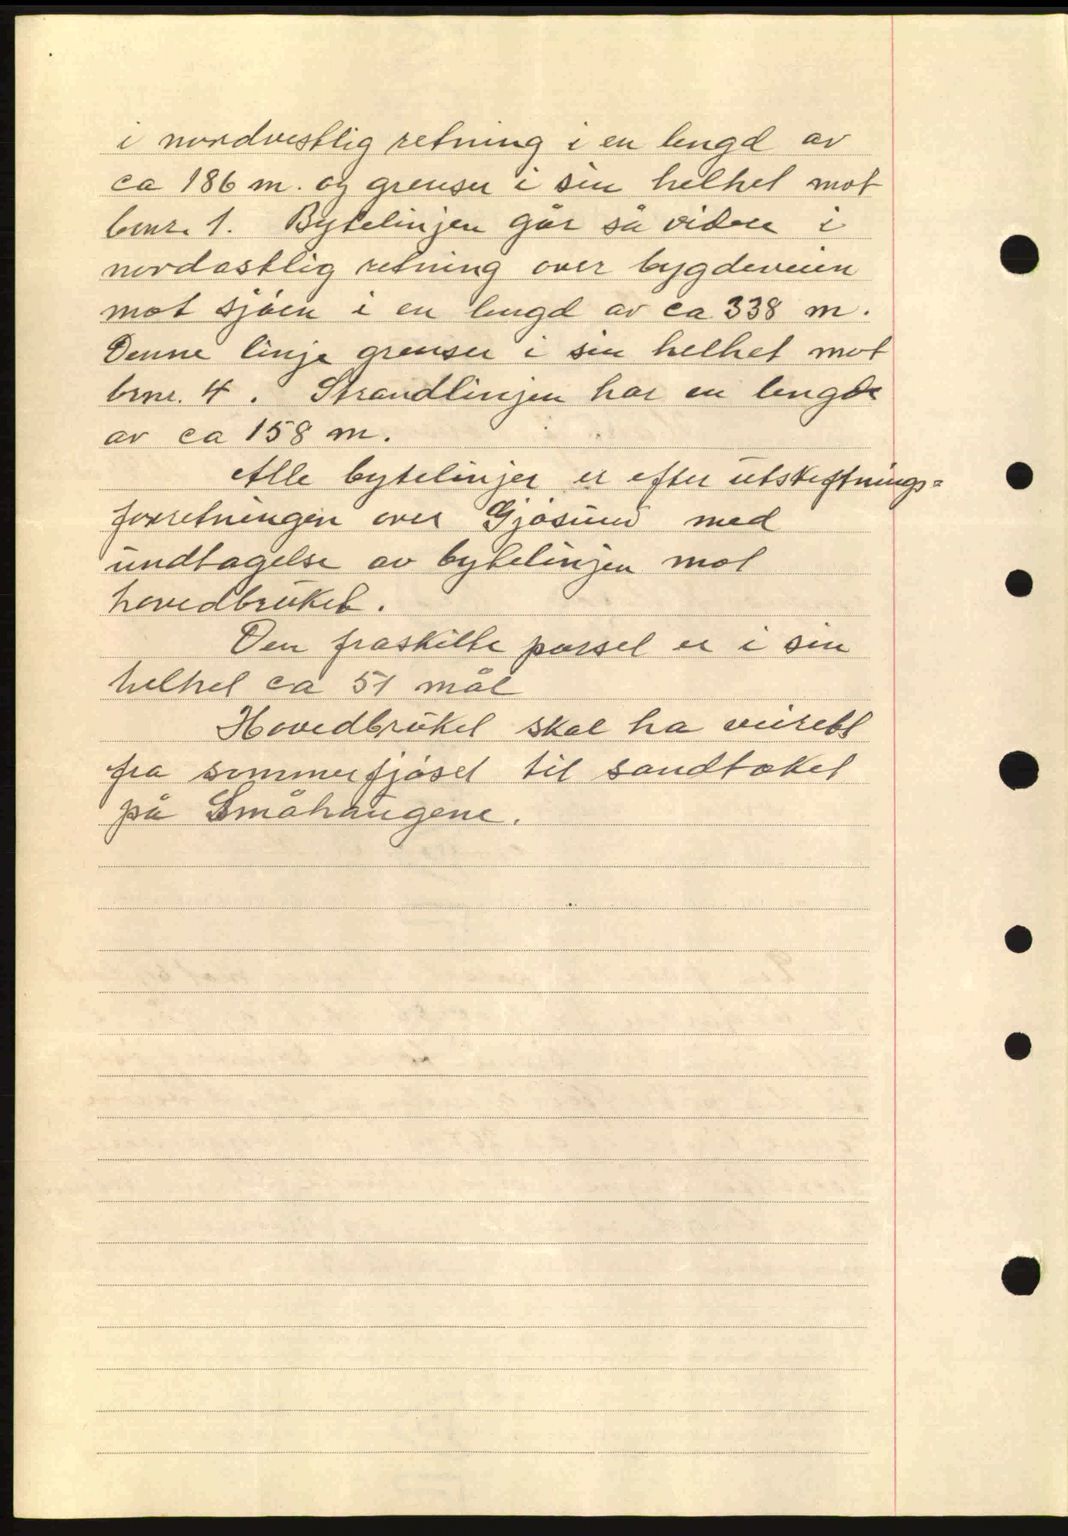 i nordvestlig retning i en lengd av
ca 186 m. og grenser i sin helhet mot
bruk 1. Bytelinjen går så videre i
nordøstlig retning over bygdeveien
mot sjøen i en lengd av ca 338 m.
Denne linje grenser i sin helhet mot
brnr. 4. Strandlinjen har en lengde
av ca 158 m.
Alle bytelinjer er efter utskiftnings=
forretningen over Gjøsund med
undtagelse av bytelinjen mot
hovedbruket.
Den fraskilte parsel er i sin
helhet ca 51 mål
Hovedbruket skal ha veirett
fra sommerfjøset til sandtaket
på Småhaugene.